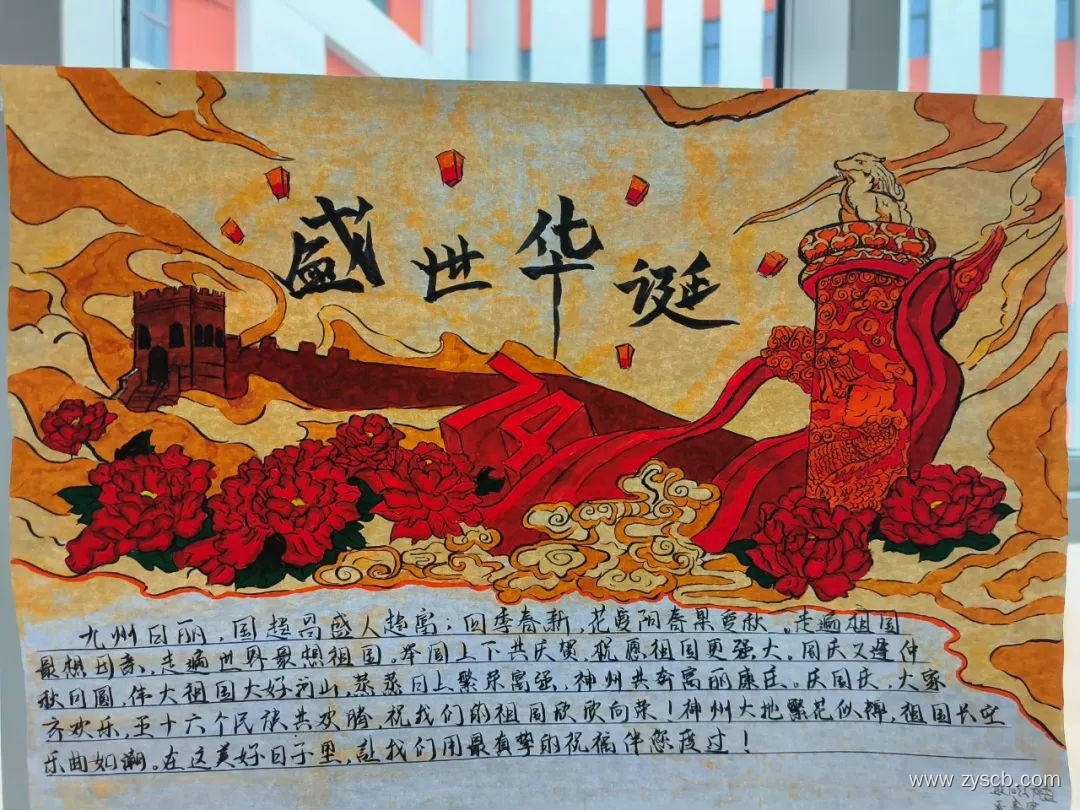 盛世华诞
74
九州日丽，国趋昌盛人趋富；四季春新，花爱阳春果爱秋。走遍祖国
最想母亲，走遍世界最想祖国。举国上下共庆贺，祝愿祖国更强大。国庆又逢仲
秋月圆，伟大祖国大好河山，蒸蒸日上繁荣富强，神州共奔富丽康庄。庆国庆，大家
齐欢乐，五十六个民族共欢腾，祝我们的祖国欣欣向荣！神州大地繁花似锦，祖国长空
乐曲如潮。在这美好日子里，让我们用最真挚的祝福伴您度过！
www.zyscb.com